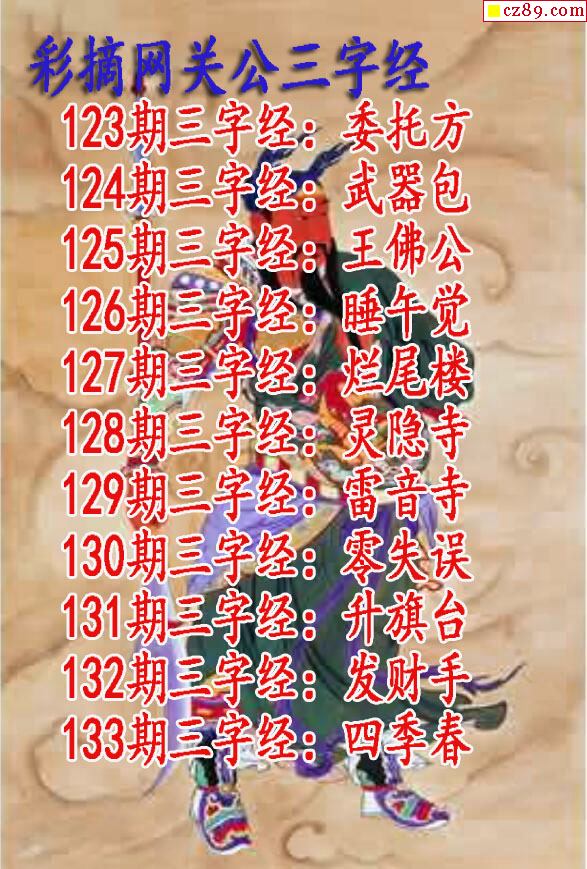 cz89.com
彩摘网关公三字经
123期三字经：委托方
124期三字经：武器包
125期三字经：王佛公
126期三字经：睡午觉
127期三字经：烂尾楼
128期三字经：灵隐寺
129期三字经：雷音寺
130期三字经：零失误
131期三字经：升旗台
132期三字经：发财手
133期三字经：四季春